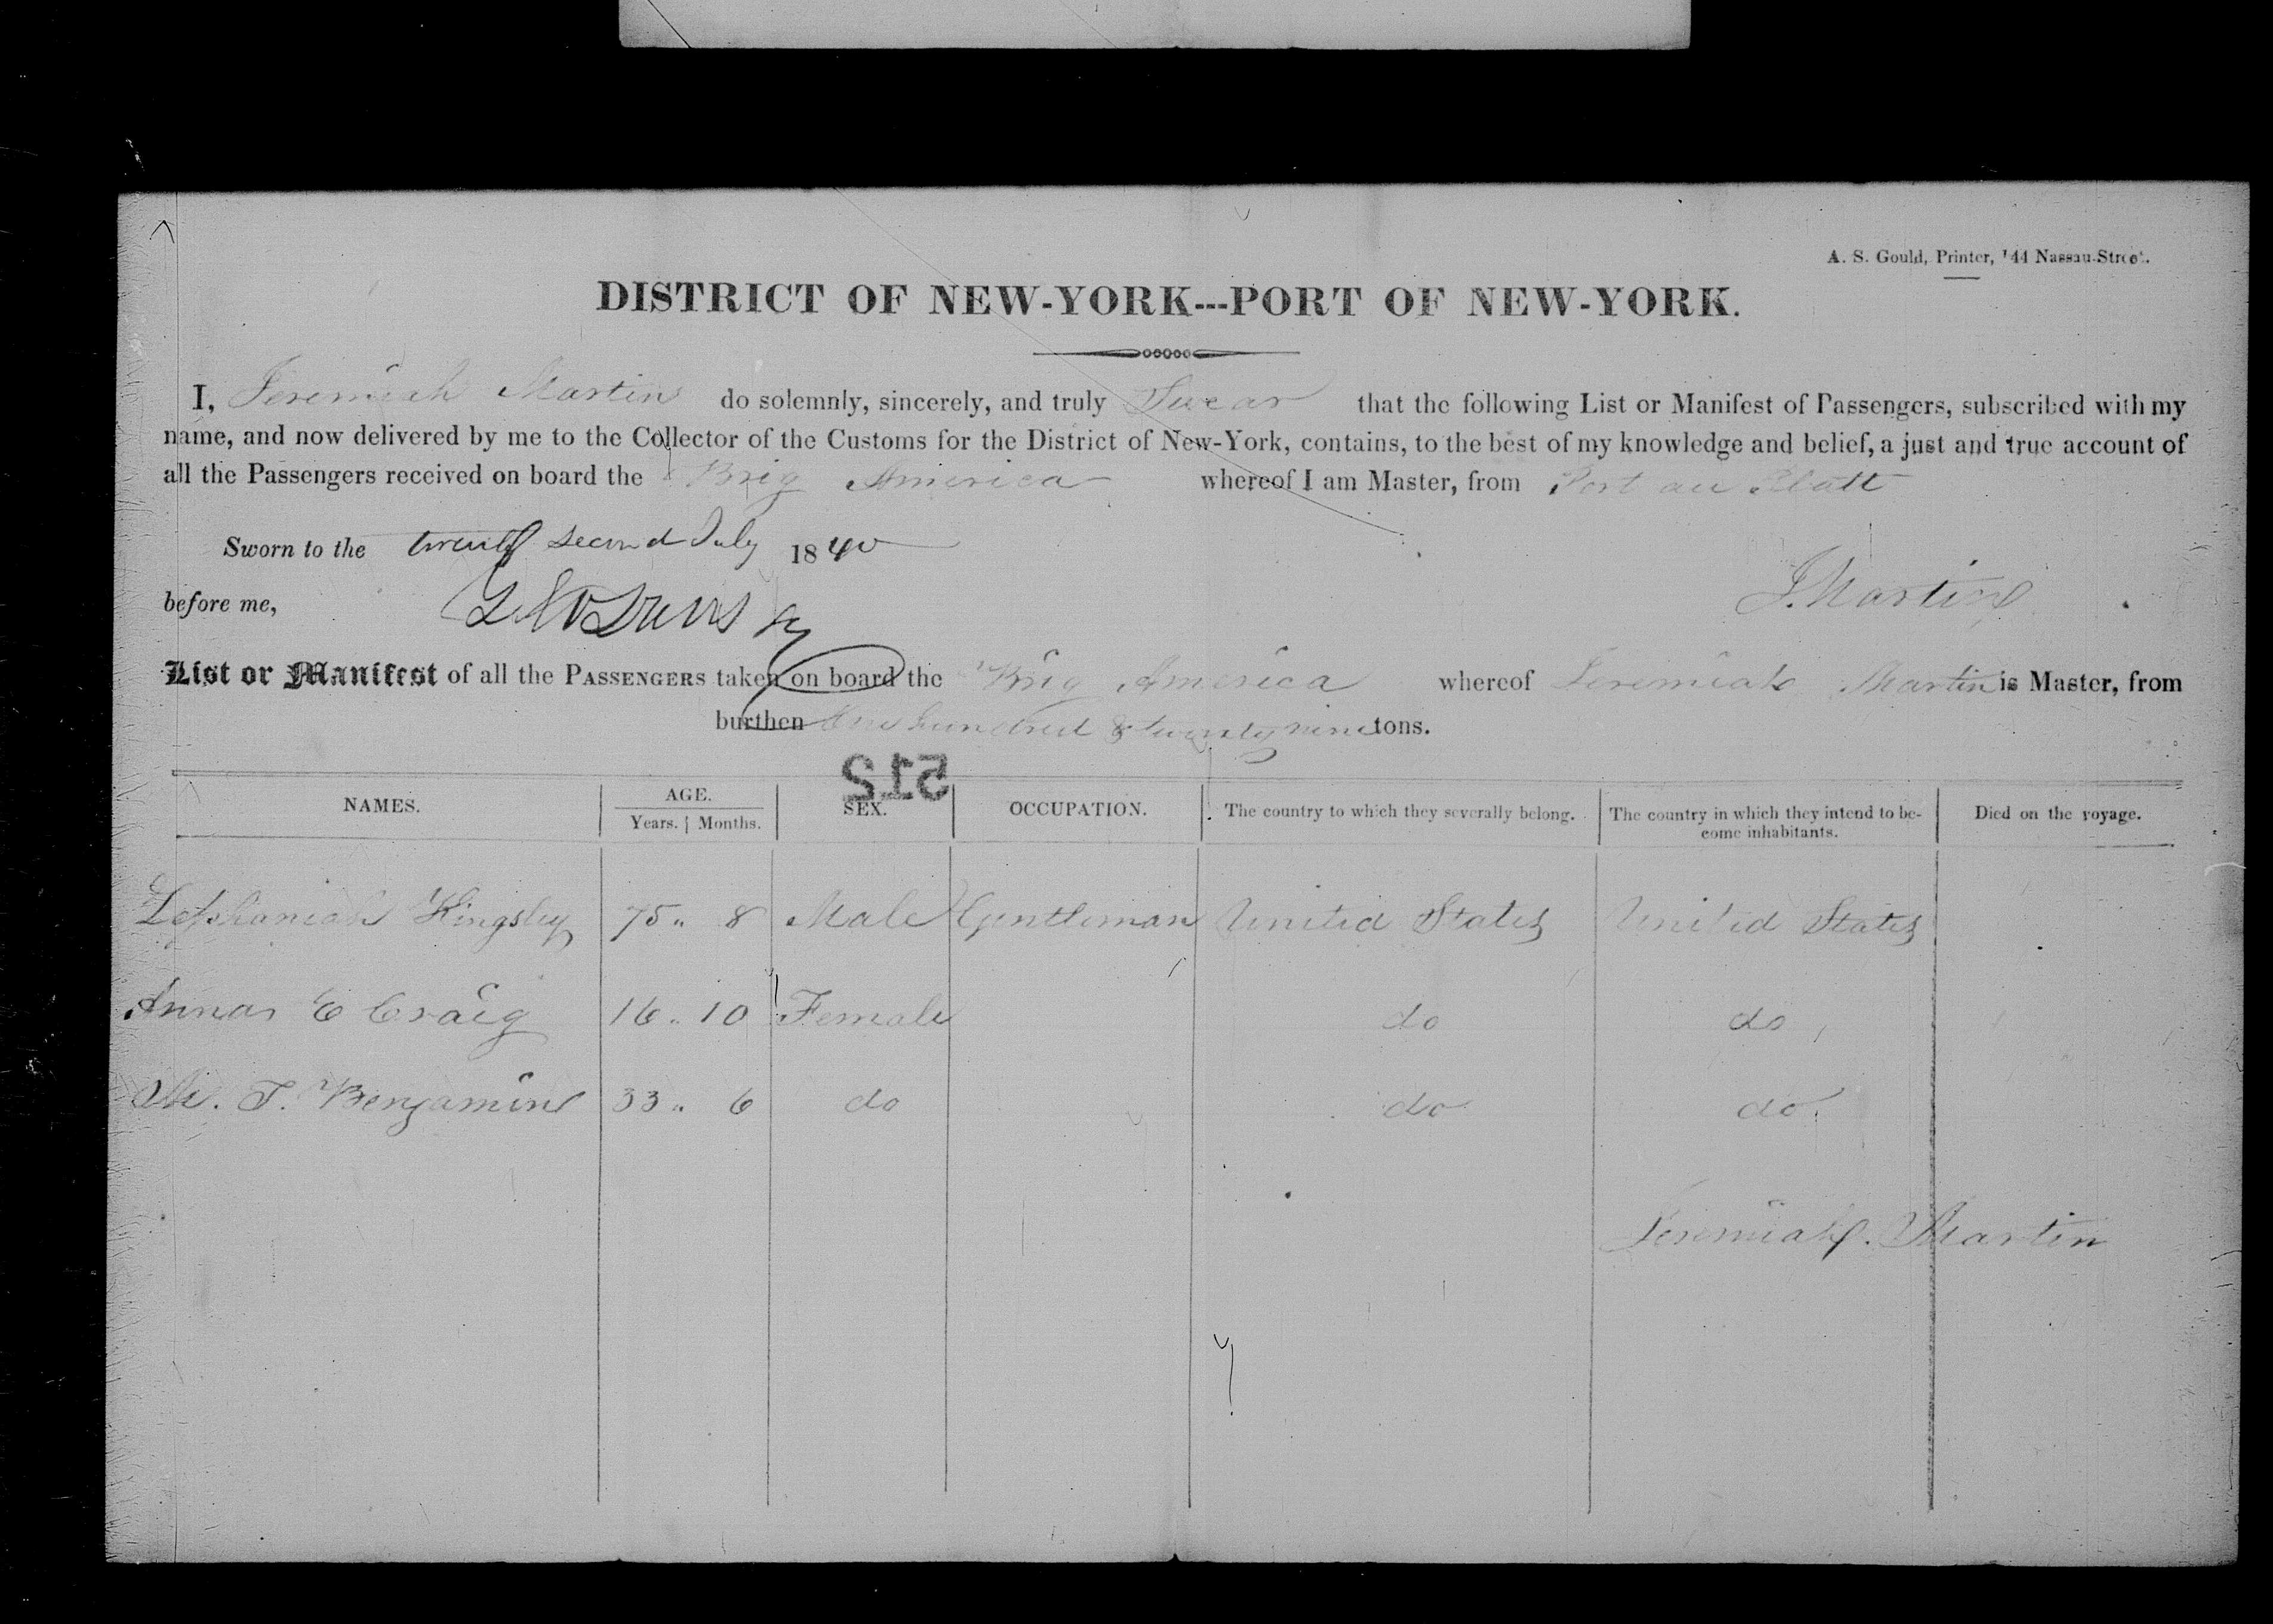 A. S. Gould, Printer, 144 Nassau-Street.
DISTRICT OF NEW-YORK---PORT OF NEW-YORK.
I, Jeremiah Martin do solemnly, sincerely, and truly Swear that the following List or Manifest of Passengers, subscribed with my
name, and now delivered by me to the Collector of the Customs for the District of New-York, contains, to the best of my knowledge and belief, a just and true account of
all the Passengers received on board the Brig America whereof I am Master, from Port au Platt
Sworn to the twenty second July 1840
J. Martin
before me,
List or Manifest of all the PASSENGERS taken on board the Brig America whereof Jeremiah Martin is Master, from
burthen One hundred & twenty nine tons.
512
NAMES. AGE. Years. Months. SEX. OCCUPATION. The country to which they severally belong. The country in which they intend to become inhabitants. Died on the voyage.
Zephaniah Kingsley 75 " 8 Male Gentleman United States United States
Anna E Craig 16 " 10 Female do do
M. T. Benjamin 33 " 6 do do do
Jeremiah Martin